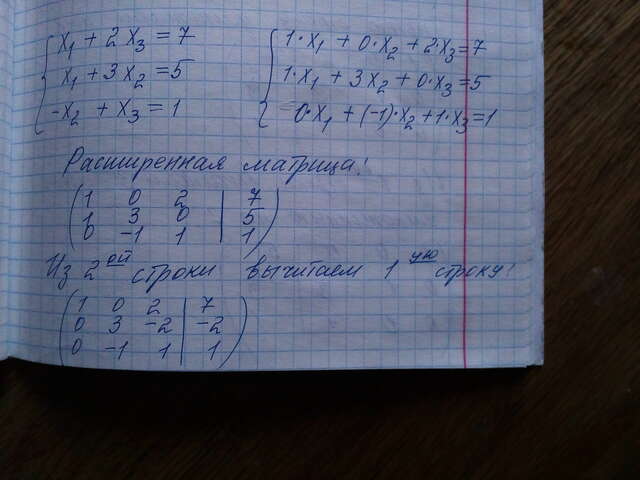 x₁ + 2x₃ = 7
x₁ + 3x₂ = 5
-x₂ + x₃ = 1
1·x₁ + 0·x₂ + 2·x₃ = 7
1·x₁ + 3x₂ + 0·x₃ = 5
0·x₁ + (-1)·x₂ + 1·x₃ = 1
Расширенная матрица:
1 0 2 | 7
1 3 0 | 5
0 -1 1 | 1
Из 2ой строки вычитаем 1ую строку:
1 0 2 | 7
0 3 -2 | -2
0 -1 1 | 1